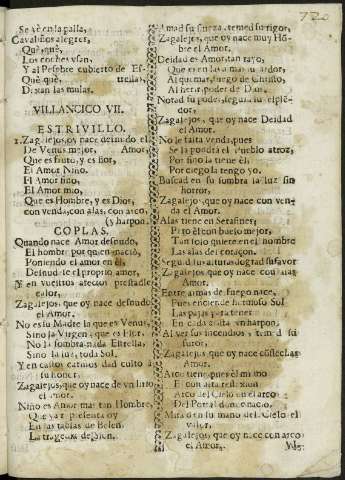 720
Se vè en la palla,
Cavallitos alegres,
Què, què,
Los coches vsan,
Y al Pesebre cubierto de Es-
Què, què, trellas,
Dexan las mulas.
VILLANCICO VII.
ESTRIVILLO.
1. Zagalejos, oy nace desnudo el
De Venus mejor, Amor
Que es fruto, y es flor,
El Amor Niño.
El Amor fino,
El Amor mio,
Que es Hombre, y es Dios,
con venda, con alas, con arco,
(y harpon.
COPLAS.
Quando nace Amor desnudo,
El hombre por quien naciò,
Poniendo el amor en èl,
Desnude el proprio amor,
Y en vuestros afectos prestadle
calor,
Zagalejos, que oy nace desnudo
el Amor.
No es su Madre la que es Venus,
Sino la Virgen, que es Flor.
No la sombra nada Estrella,
Sino la luz, toda Sol.
Y en castos cariños dad culto à
su honor,
Zagalejos, que oy nace de vn lirio
el amor.
Niño es Amor, mas tan Hombre,
Que ya representa oy
En las tablas de Belen,
La tragedia de Sion.
Amad su fineza, temed su rigor,
Zagalejos, que oy nace muy Hõ-
bre el Amor.
Deidad es Amor, tan rayo,
Que es en las almas ardor,
Al quemar, fuego de Christo,
Al herir, poder de Dios.
Notad su poder, seguid su esplẽ-
dor,
Zagalejos, que oy nace Deidad
el Amor.
No le falta venda, pues
Se la pondrà el Pueblo atroz,
Por sino la tiene èl,
Por ciego la tengo yo.
Buscad en su sombra la luz sin
horror,
Zagalejos, que oy nace con ven-
da el Amor.
Alas tiene en Serafines,
Pero èl con buelo mejor,
Tan solo quiere en el nombre
Las alas del coraçon.
Seguid su altura, lograd su favor
Zagalejos, que oy nace con alas
Amor.
Entre armas de fuego nace,
Pues enciende hermoso Sol
Las pajas, para tener
En cada arista vn harpon.
Al ver sus incendios, temed su
furor,
Zagalejos, que oy nace con flechas
Amor.
Arco tiene, pues èl mismo
Es con alta reflexion
Arco del Cielo en el arco
Del Portal donde naciò.
Mirad en su mano del Cielo el
valor,
Zagalejos, que oy nace con arco
el Amor.